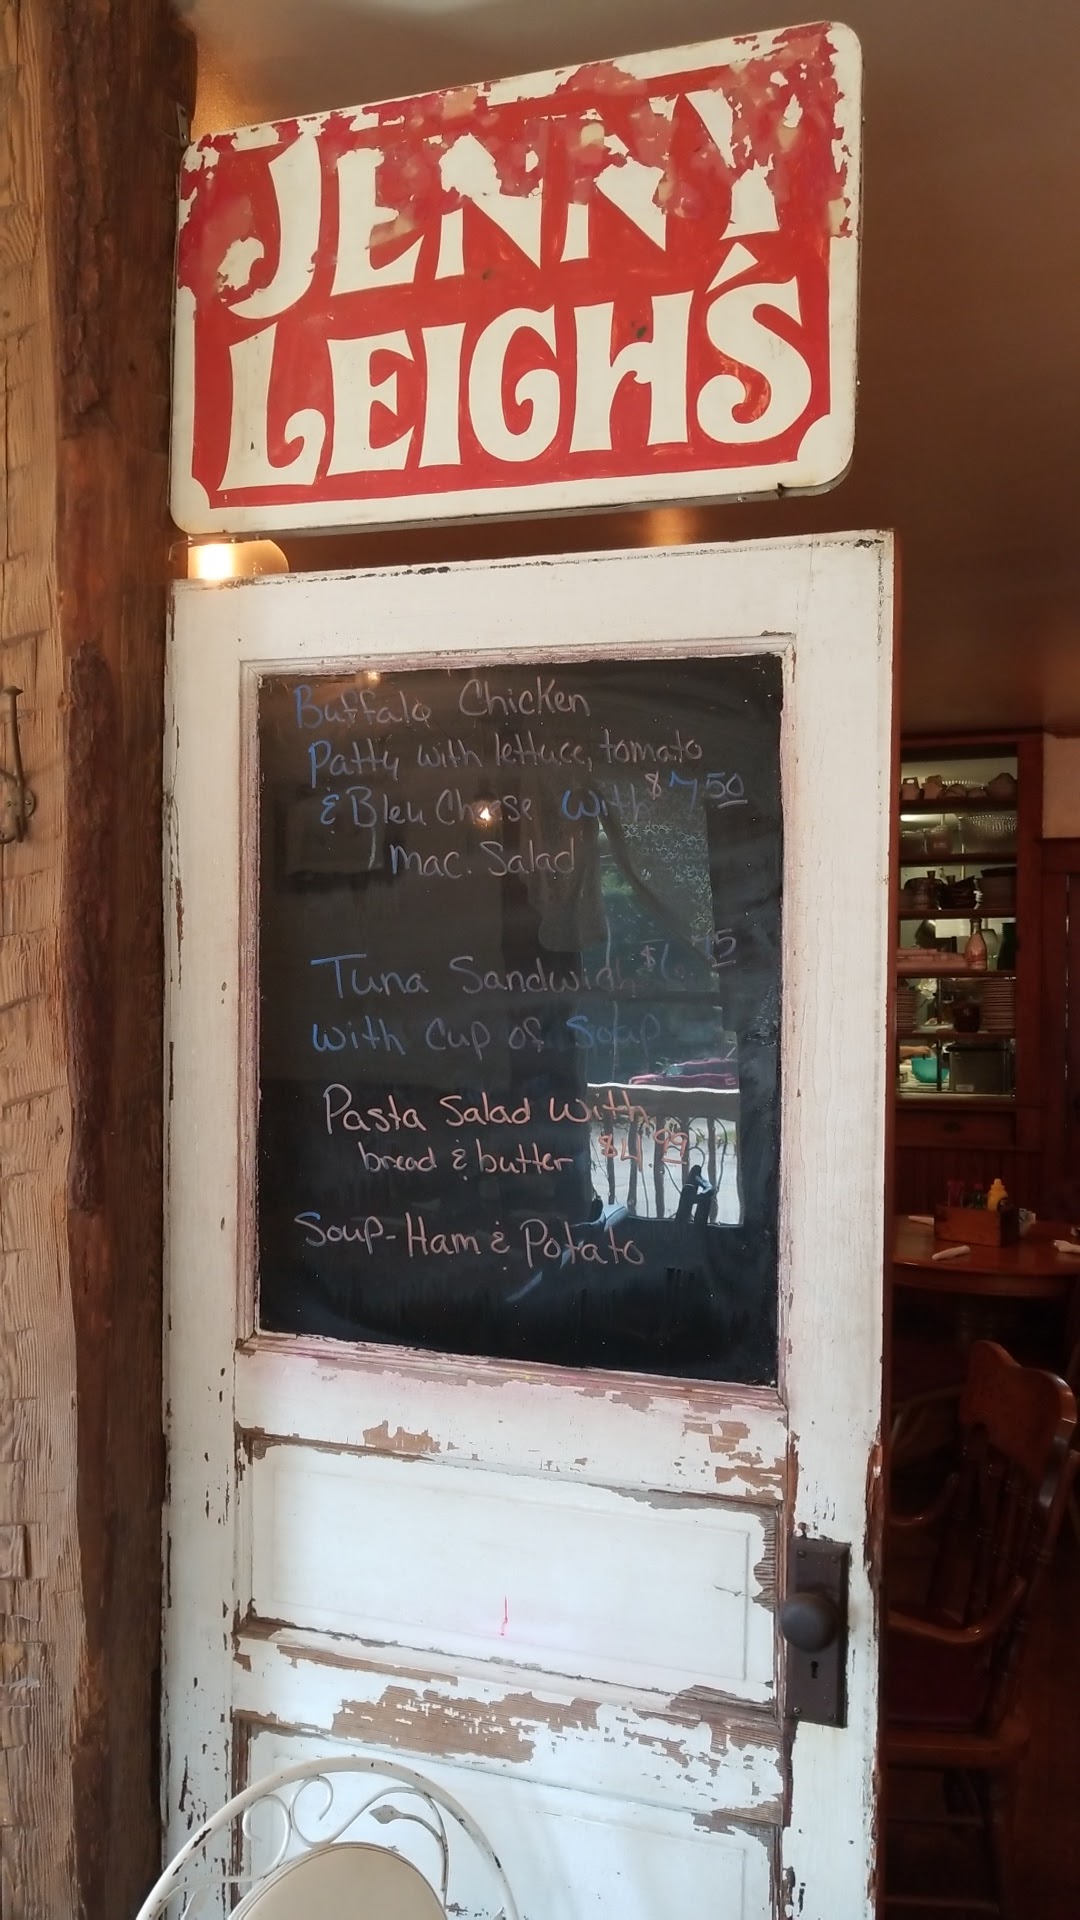 JENNY
LEIGH'S
Buffalo Chicken
Patty with lettuce, tomato
& Bleu Cheese with $7.50
Mac. Salad
Tuna Sandwich $6.75
with Cup of Soup
Pasta Salad with
bread & butter $4.99
Soup- Ham & Potato